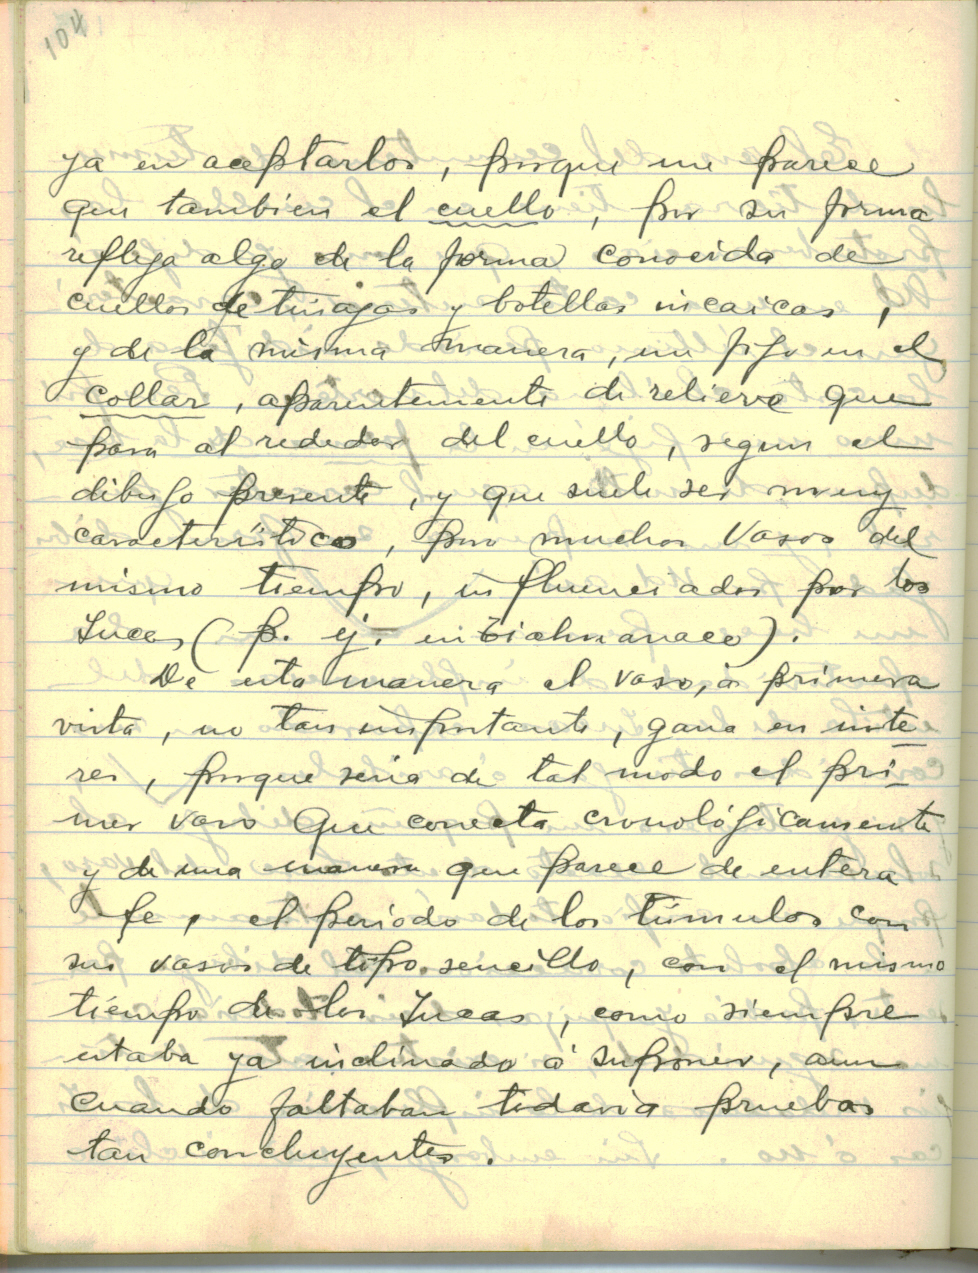 104
ya en aceptarlos, porque me parece
que tambien el cuello, por su forma
refleja algo de la forma conocida de
cuellos de tinajas y botellas incaicas,
y de la misma manera, me fijo en el
collar, aparentemente de relieve que
pasa al rededor del cuello, segun el
dibujo presente, y que suele ser muy
caracteristico, para muchos vasos del
mismo tiempo, influenciados por los
Incas (p. ej. en Tiahuanaco).
De esta manera el vaso, á primera
vista, no tan importante, gana en inte
res, porque seria de tal modo el pri
mer vaso que conecta cronológicamente
y de una manera que parece de entera
fe, el periodo de los túmulos con
sus vasos de tipo sencillo, con el mismo
tiempo de los Incas, como siempre
estaba ya inclinado á suponer, aun
cuando faltaban todavia pruebas
tan concluyentes.